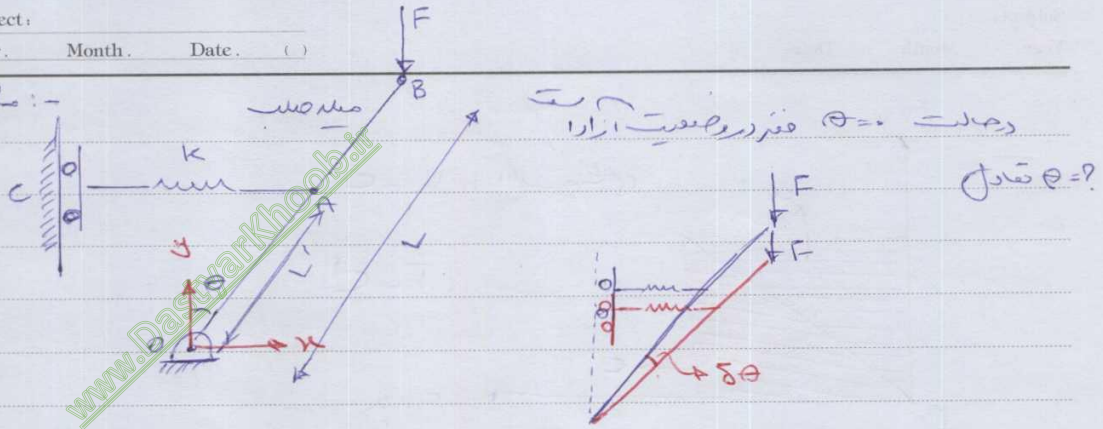 ect:
Month. Date. ( )
F
B
میله صلب
در حالت θ=0 فنر در وضعیت آزاد است
K
C
A
F
θ=? تعادل
y
L'
L
F
θ
O
x
δθ
www.DastyarKhoob.ir